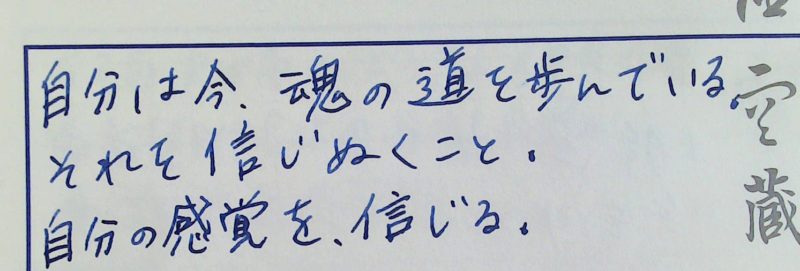 自分は今、魂の道を歩んでいる。
それを信じぬくこと。
自分の感覚を、信じる。
空蔵